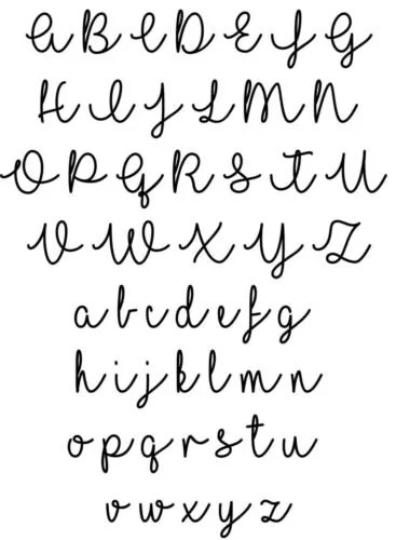 A B C D E F G
H I J L M N
O P Q R S T U
V W X Y Z
a b c d e f g
h i j k l m n
o p q r s t u
v w x y z